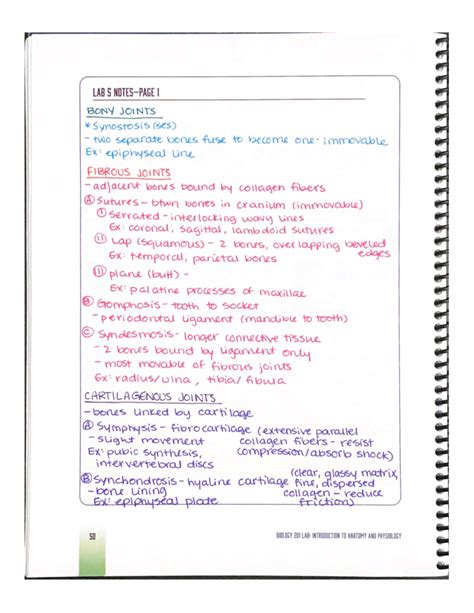 LAB 5 NOTES—PAGE 1
BONY JOINTS
* Synostosis (ses)
- two separate bones fuse to become one - immovable
Ex: epiphyseal line
FIBROUS JOINTS
- adjacent bones bound by collagen fibers
Ⓐ Sutures - btwn bones in cranium (immovable)
① serrated - interlocking wavy lines
Ex: coronal, sagittal, lambdoid sutures
⑪ Lap (squamous) - 2 bones, overlapping beveled edges
Ex: temporal, parietal bones
⑪ plane (butt) -
Ex: palatine processes of maxillae
Ⓑ Gomphosis - tooth to socket
- periodontal ligament (mandible to tooth)
Ⓒ Syndesmosis - longer connective tissue
- 2 bones bound by ligament only
- most movable of fibrous joints
Ex: radius/ulna, tibia/fibula
CARTILAGENOUS JOINTS
- bones linked by cartilage
Ⓐ Symphysis - fibrocartilage (extensive parallel
- slight movement collagen fibers - resist
Ex: pubic synthesis, compression/absorb shock)
intervertebral discs
(clear, glassy matrix,
Ⓑ Synchondrosis - hyaline cartilage fine, dispersed
- bone lining collagen - reduce
Ex: epiphyseal plate friction)
50
BIOLOGY 201 LAB: INTRODUCTION TO ANATOMY AND PHYSIOLOGY